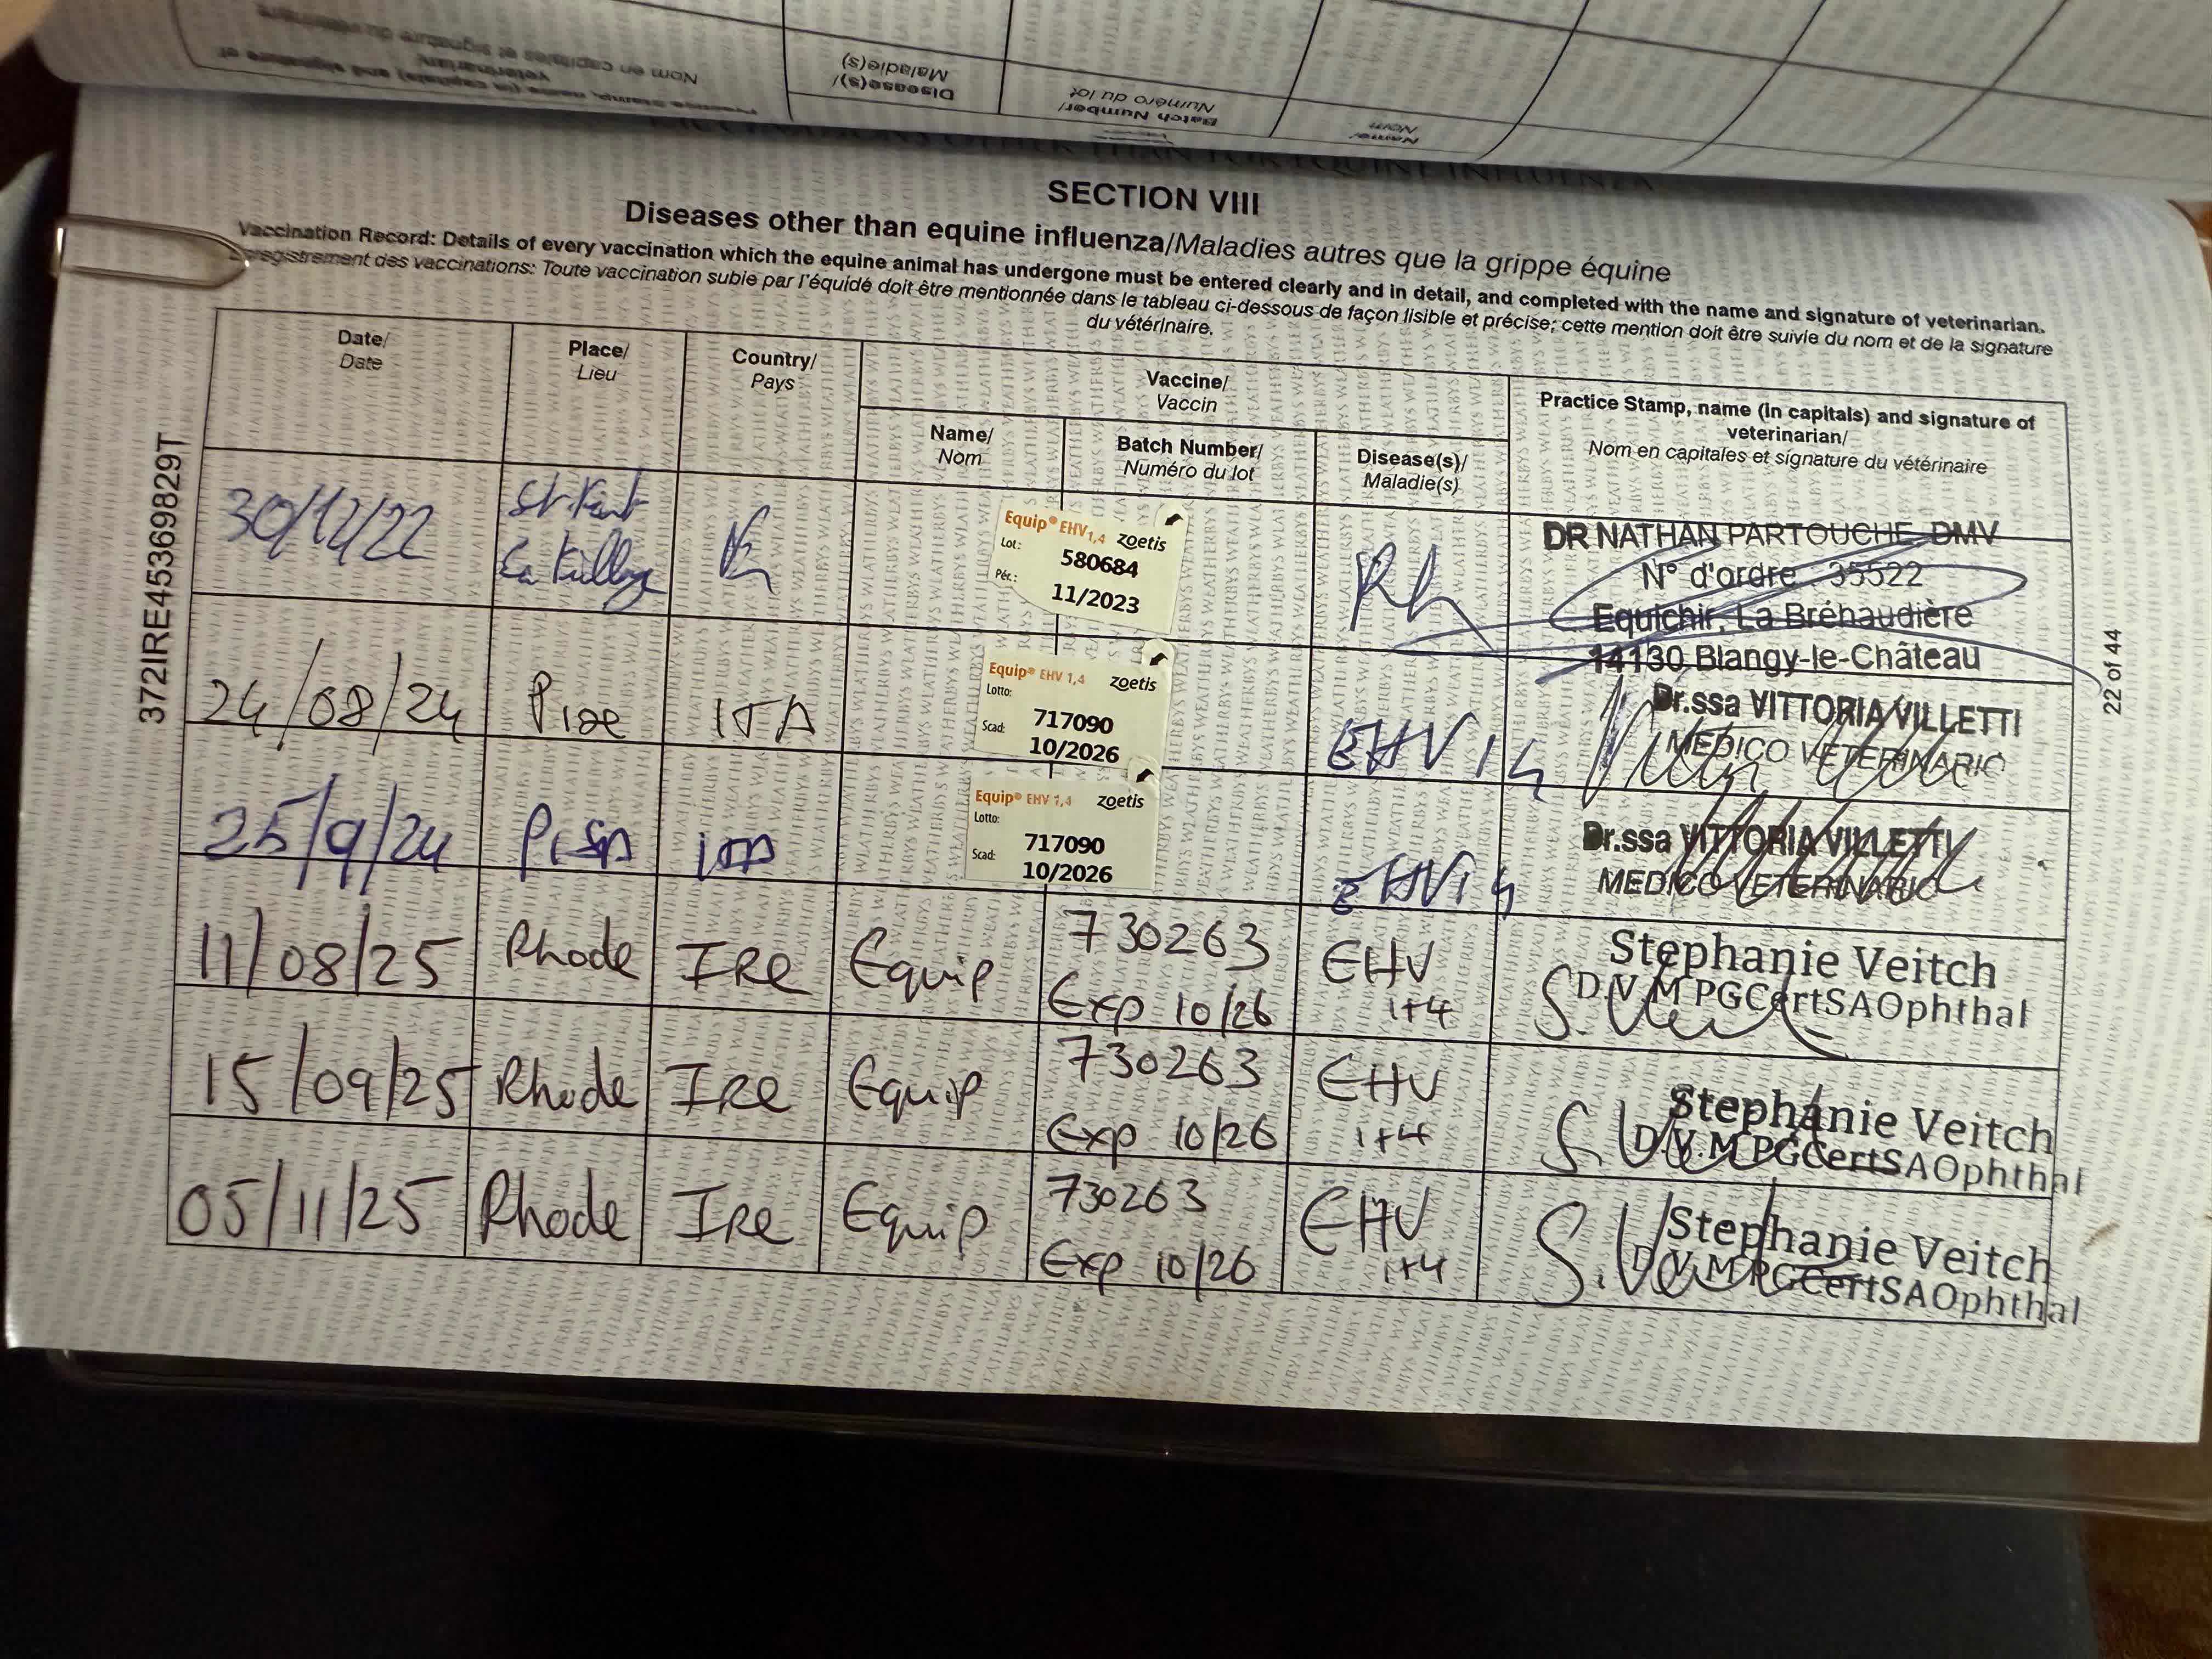 Nom en capitales et signature du vétérinaire
Disease(s)/
Maladie(s)
Batch Number/
Numéro du lot
Name/
Nom
SECTION VIII
Diseases other than equine influenza/Maladies autres que la grippe équine
Vaccination Record: Details of every vaccination which the equine animal has undergone must be entered clearly and in detail, and completed with the name and signature of veterinarian.
Enregistrement des vaccinations: Toute vaccination subie par l'équidé doit être mentionnée dans le tableau ci-dessous de façon lisible et précise; cette mention doit être suivie du nom et de la signature
du vétérinaire.
Date/
Date
Place/
Lieu
Country/
Pays
Vaccine/
Vaccin
Name/
Nom
Batch Number/
Numéro du lot
Disease(s)/
Maladie(s)
Practice Stamp, name (in capitals) and signature of
veterinarian/
Nom en capitales et signature du vétérinaire
30/12/22
Equip® EHV1,4 zoetis
Lot: 580684
Pér.: 11/2023
Rh
DR NATHAN PARTOUCHE DMV
N° d'ordre 35522
Equichir, La Bréhaudière
14130 Blangy-le-Château
24/08/24
ITA
Equip® EHV 1,4 zoetis
Lotto: 717090
Scad: 10/2026
EHV 1 4
Dr.ssa VITTORIA VILLETTI
MEDICO VETERINARIO
25/9/24 Pisa ITA
Equip® EHV 1,4 zoetis
Lotto: 717090
Scad: 10/2026
EHV 1 4
Dr.ssa VITTORIA VILLETTI
MEDICO VETERINARIO
11/08/25 Rhode IRe Equip 730263
Exp 10/26
EHV
1+4
Stephanie Veitch
D.V.M PGCertSAOphthal
15/09/25 Rhode IRe Equip 730263
Exp 10/26
EHV
1+4
Stephanie Veitch
D.V.M PGCertSAOphthal
05/11/25 Rhode IRe Equip 730263
Exp 10/26
EHV
1+4
Stephanie Veitch
D.V.M PGCertSAOphthal
372IRE45369829T
22 of 44